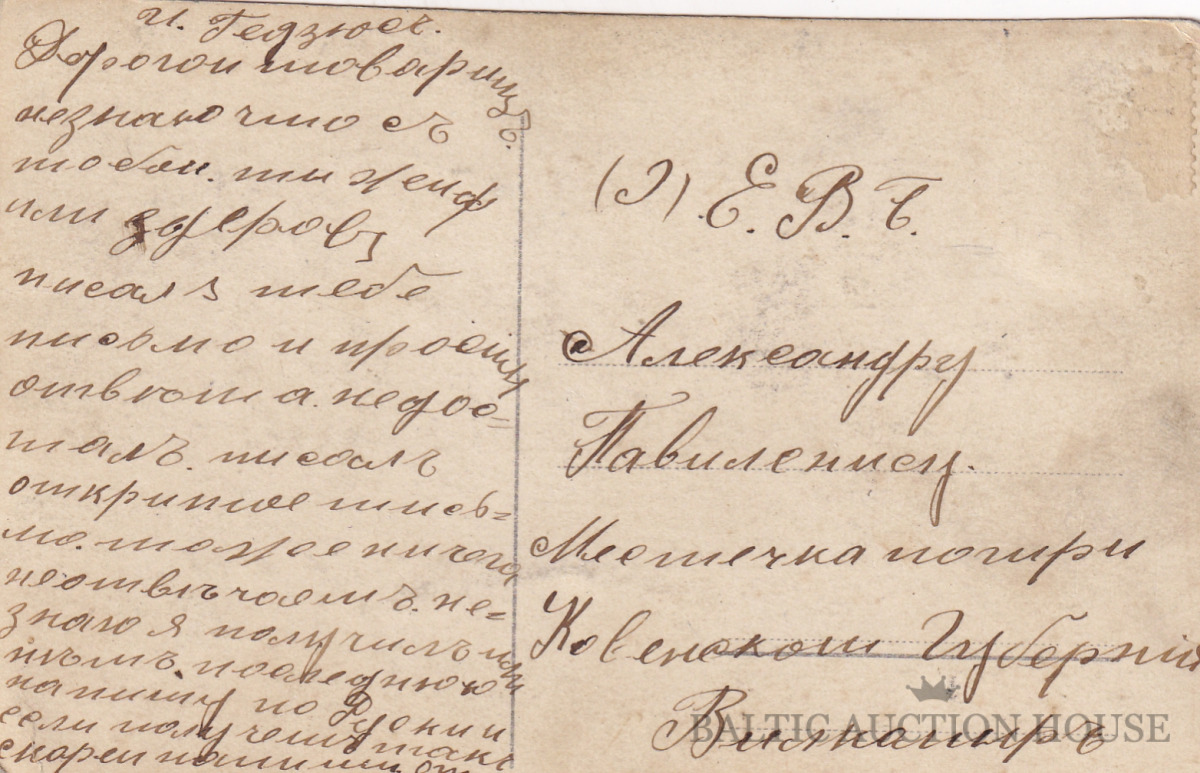 И. Гедзюсъ.
Дорогой товарищъ.
незнаю что съ
тобои. ты
или здеровъ
писалъ тебе
письмо и просилъ
отвѣта. недос=
талъ. писалъ
откритое пись=
мо. тоже ничего
неотвѣчаемъ. не=
знаю я получилъ или
нѣтъ. последнюю
напишу по Руски и
если получешъ такъ
скореи напиши
(Э) Е. В. Б.
Александру
Павиленису.
Местечка погири
Ковенскои Губернии
Вилкамиръ
BALTIC AUCTION HOUSE